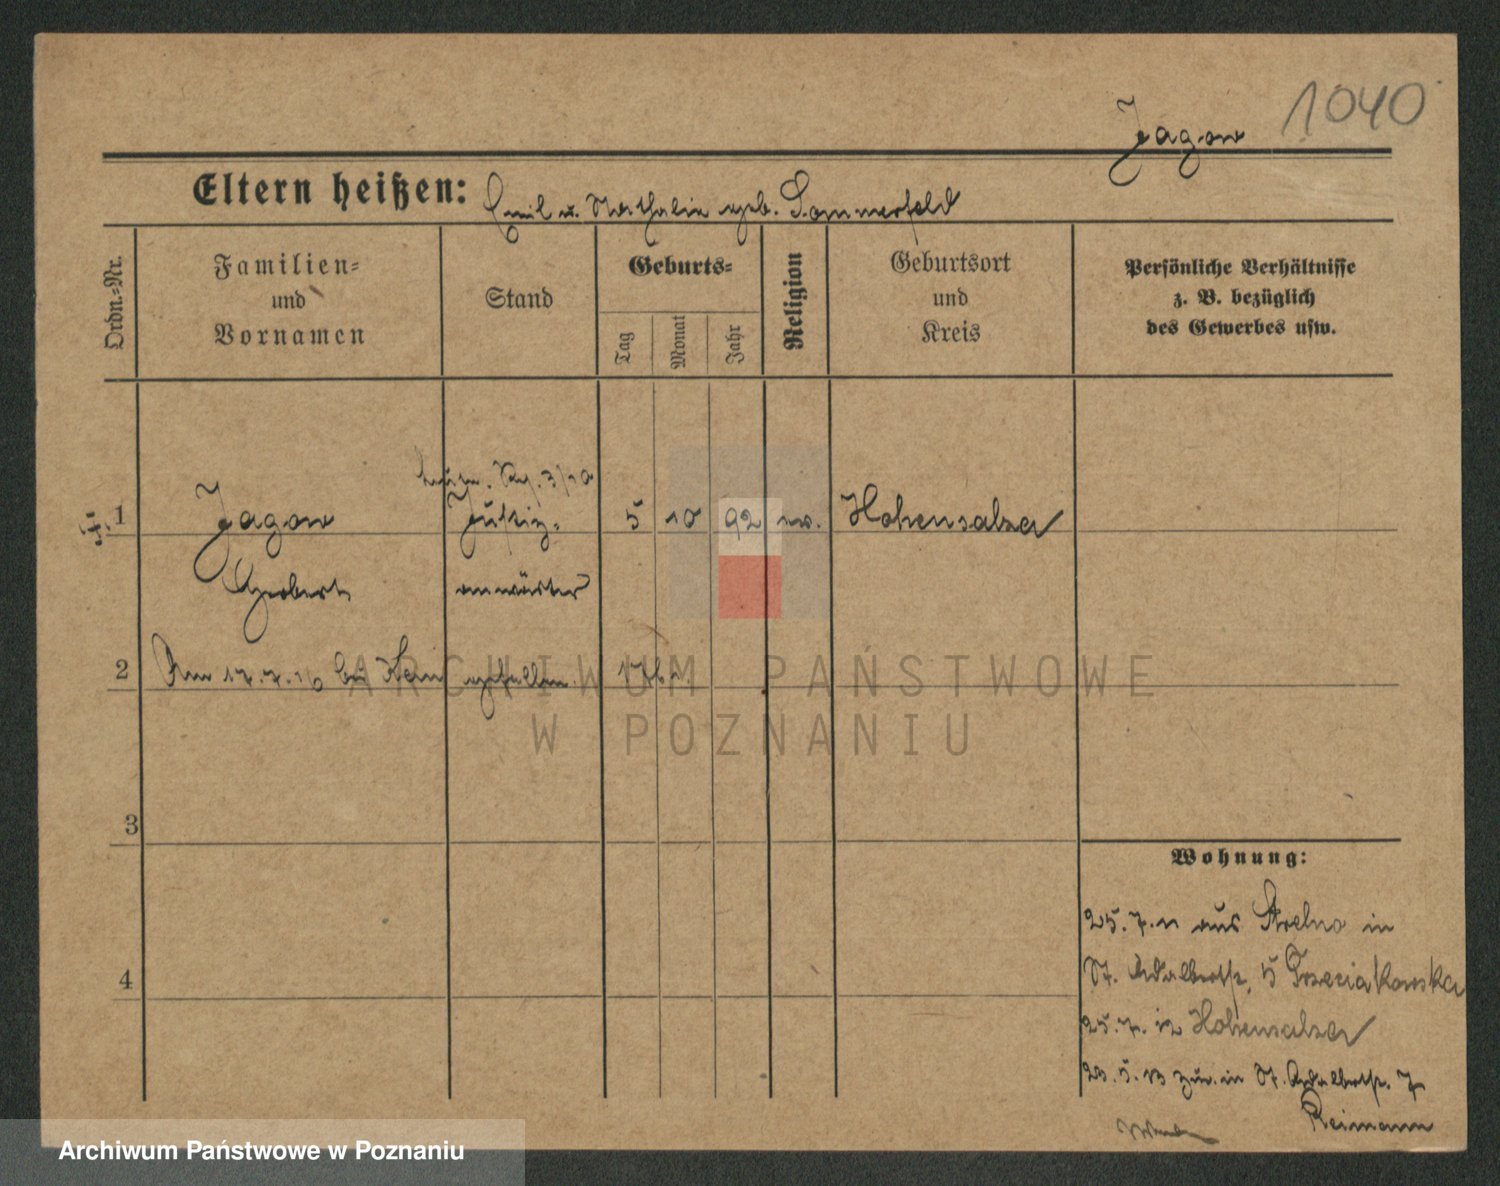 1040
Jagow
Eltern heißen: Emil u. Nathalie geb. Sommerfeld
Ordn.=Nr.
Familien=
und
Vornamen
Stand
Geburts=
Tag
Monat
Jahr
Religion
Geburtsort
und
Kreis
Persönliche Verhältnisse
z. B. bezüglich
des Gewerbes usw.
1 Jagow Justiz= 5 10 92 ev. Hohensalza
anwärter
2 Am 17.7.16 gefallen.
3
4
Wohnung:
25.7.11 aus Strelno in
St. Adalbertstr. 5 Trzeciakowska
25.7.12 Hohensalza
23.5.13 zur. in St. Adalbertstr. 7
Reimann
ARCHIWUM PAŃSTWOWE
W POZNANIU
Archiwum Państwowe w Poznaniu